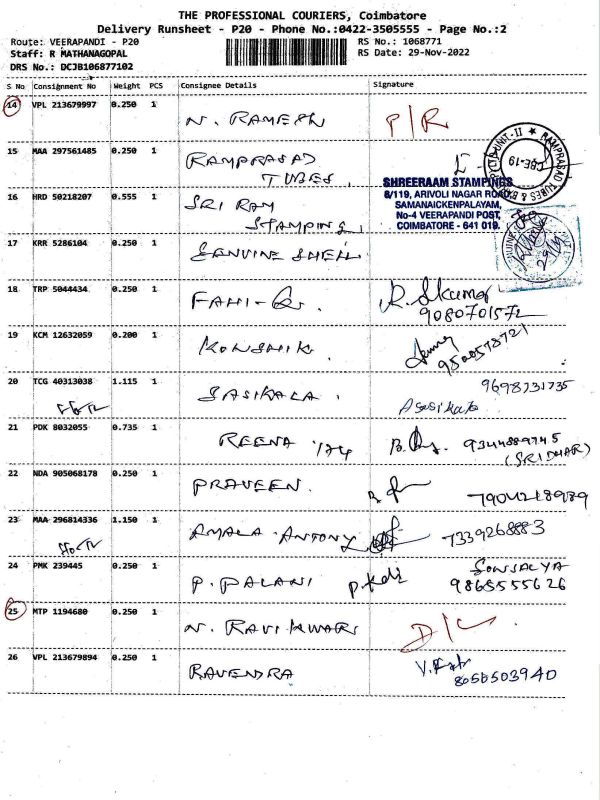 THE PROFESSIONAL COURIERS, Coimbatore
Delivery Runsheet - P20 - Phone No.:0422-3505555 - Page No.:2
Route: VEERAPANDI - P20
RS No.: 1068771
Staff: R MATHANAGOPAL
RS Date: 29-Nov-2022
DRS No.: DCJB106877102
S No Consignment No Weight PCS Consignee Details Signature
14 VPL 213679997 0.250 1 N. RAMESH P/R
15 MAA 297561485 0.250 1 RAMPRASAD
TUBES.
RAMPRASAD TUBES & UNIT-II CBE-19
16 HRD 50218207 0.555 1 SRI RAM
STAMPING
SHREERAAM STAMPINGS
8/119, ARIVOLI NAGAR ROAD,
SAMANAICKENPALAYAM,
No-4 VEERAPANDI POST,
COIMBATORE - 641 019.
17 KRR 5286104 0.250 1 GENUINE SHELL
18 TRP 5044434 0.250 1 R. S.Kumar
9080701572
19 KCM 12632059 0.200 1 KOWSHIK.
9500578721
20 TCG 40313038 1.115 1 SASIKALA. 9698731735
A Sasikala
21 PDK 8032055 0.735 1 REENA 9344889745
(SRIDHAR)
22 NDA 905068178 0.250 1 PRAVEEN. 7904218989
23 MAA 296814336 1.150 1 AMALA ANTONY 7339268883
24 PMK 239445 0.250 1 P. PALANI
9865555626
25 MTP 1194680 0.250 1 N. RAVIKUMAR D/L
26 VPL 213679894 0.250 1 RAVENDRA
8056503940